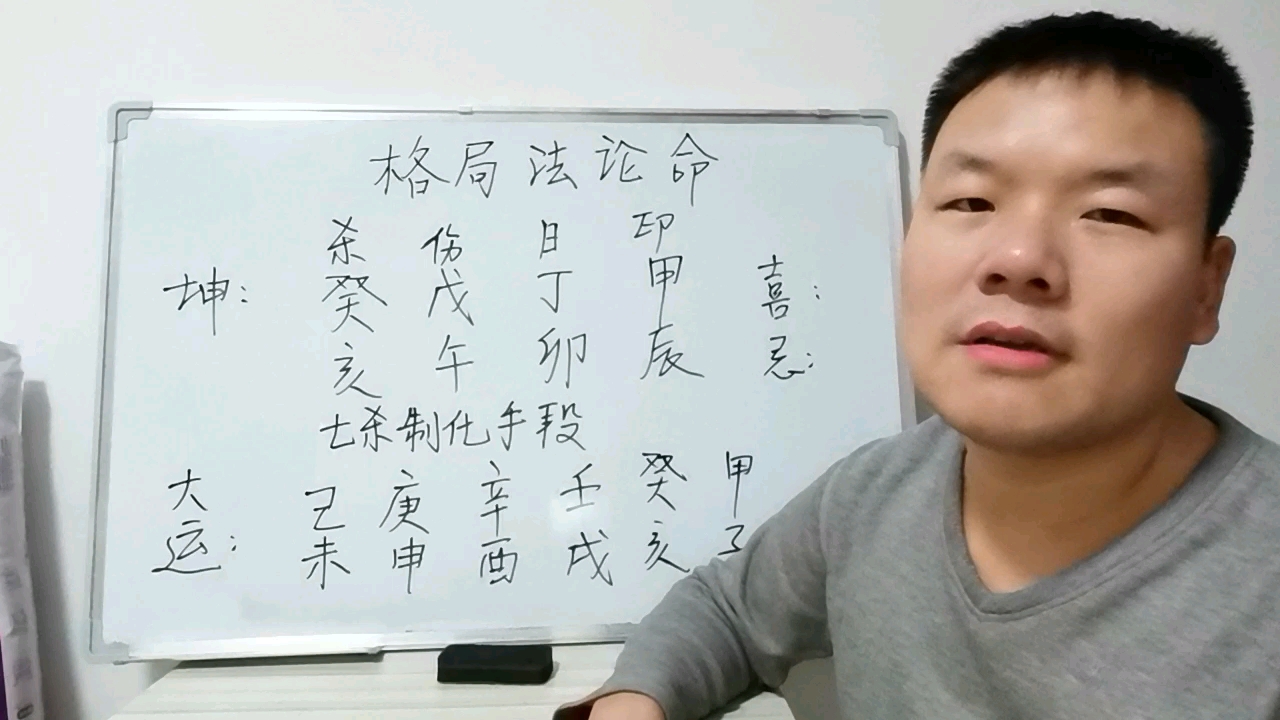 格局法论命
杀 伤 日 印
坤: 癸 戊 丁 甲 喜:
亥 午 卯 辰 忌:
七杀制化手段
大 己 庚 辛 壬 癸 甲
运: 未 申 酉 戌 亥 子